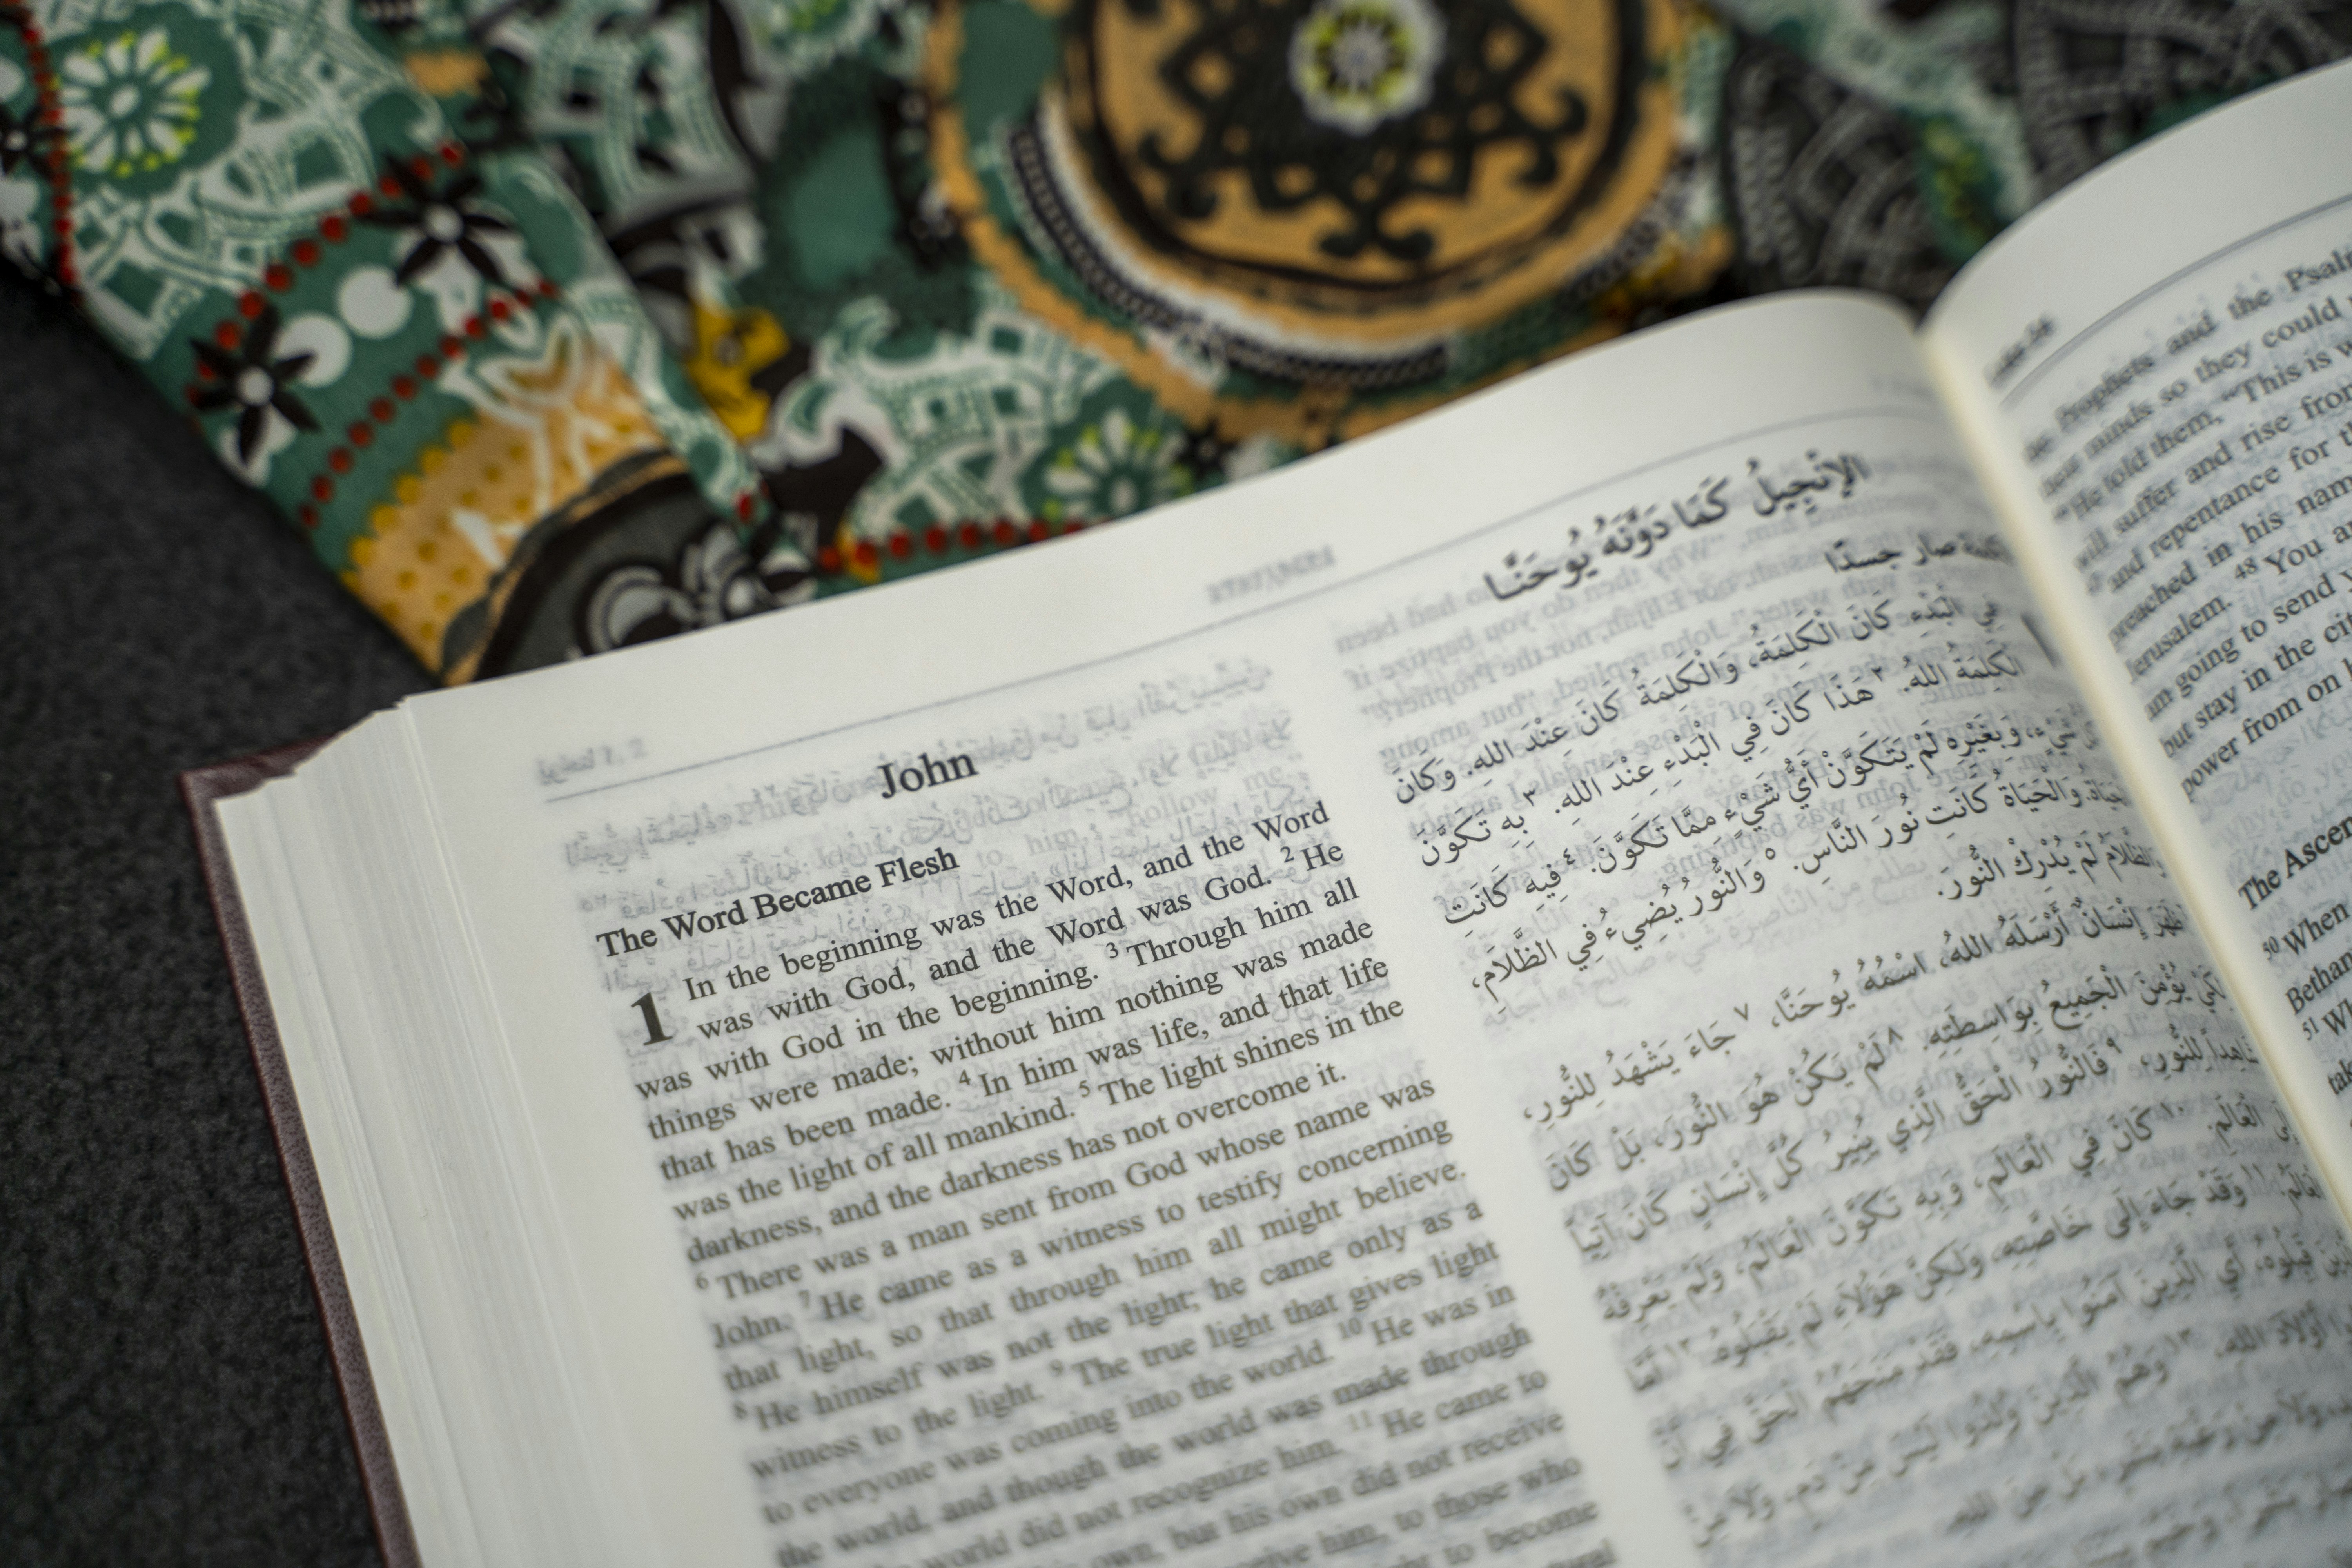 John
The Word Became Flesh
1 In the beginning was the Word, and the Word
was with God, and the Word was God. 2 He
was with God in the beginning. 3 Through him all
things were made; without him nothing was made
that has been made. 4 In him was life, and that life
was the light of all mankind. 5 The light shines in the
darkness, and the darkness has not overcome it.
6 There was a man sent from God whose name was
John. 7 He came as a witness to testify concerning
that light, so that through him all might believe.
8 He himself was not the light; he came only as a
witness to the light. 9 The true light that gives light
to everyone was coming into the world. 10 He was in
the world, and though the world was made through
world did not recognize him. 11 He came to
own, but his own did not receive
receive him, to those who
to become
الإنجِيلُ كَمَا دَوَّنَهُ يُوحَنَّا
صار جسدًا
فِي الْبَدْءِ كَانَ الْكَلِمَةُ، وَالْكَلِمَةُ كَانَ عِنْدَ اللهِ. وَكَانَ
الْكَلِمَةُ اللهُ. ٢ هَذَا كَانَ فِي الْبَدْءِ عِنْدَ اللهِ. ٣ بِهِ تَكَوَّنَ
شَيْءٍ، وَبِغَيْرِهِ لَمْ يَتَكَوَّنْ أَيُّ شَيْءٍ مِمَّا تَكَوَّنَ. ٤ فِيهِ كَانَتِ
الْحَيَاةُ. وَالْحَيَاةُ كَانَتِ نُورَ النَّاسِ. ٥ وَالنُّورُ يُضِيءُ فِي الظَّلاَمِ،
وَالظَّلاَمُ لَمْ يُدْرِكْ النُّورَ.
ظَهَرَ إِنْسَانٌ أَرْسَلَهُ اللهُ، اسْمُهُ يُوحَنَّا، ٧ جَاءَ يَشْهَدُ لِلنُّورِ،
لِكَيْ يُؤْمِنَ الْجَمِيعُ بِوَاسِطَتِهِ. ٨ لَمْ يَكُنْ هُوَ النُّورَ، بَلْ كَانَ
شَاهِداً لِلنُّورِ، ٩ فَالنُّورُ الْحَقُّ الَّذِي يُنِيرُ كُلَّ إِنْسَانٍ كَانَ آتِياً
إِلَى الْعَالَمِ. ١٠ كَانَ فِي الْعَالَمِ، وَبِهِ تَكَوَّنَ الْعَالَمُ، وَلَمْ يَعْرِفْهُ
الْعَالَمُ. ١١ وَقَدْ جَاءَ إِلَى خَاصَّتِهِ، وَلَكِنَّ هَؤُلاَءِ لَمْ يَقْبَلُوهُ. ١٢ أَمَّا
الَّذِينَ قَبِلُوهُ، أَيِ الَّذِينَ آمَنُوا بِاسْمِهِ، فَقَدْ مَنَحَهُمُ الْحَقَّ فِي أَنْ
أَوْلاَدَ اللهِ، ١٣ وَهُمُ الَّذِينَ وُلِدُوا لَيْسَ مِنْ دَمٍ، وَلاَ مِنْ
وَلاَ مِنْ رَغْبَةِ بَشَرٍ، بَلْ مِنَ اللهِ.
the Prophets and the
minds so they could
He told them, "This is
will suffer and rise from
and repentance for
preached in his name
Jerusalem. 48 You
am going to send
but stay in the city
power from on
The
50 When
51